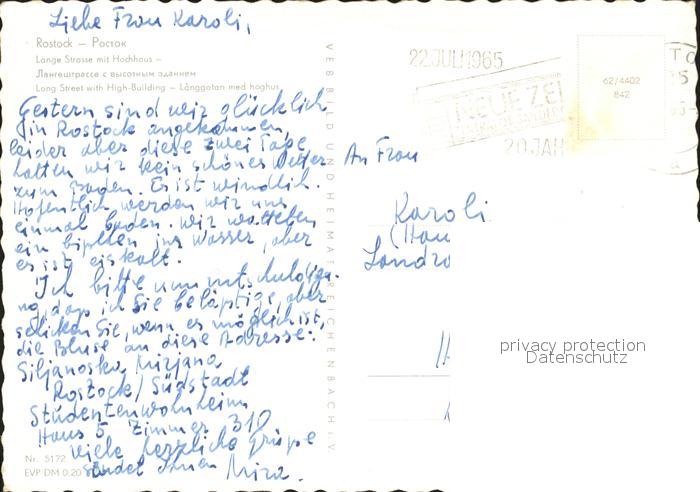 Liebe Frau Karoli,
Rostock — Росток
Lange Strasse mit Hochhaus —
Лангештрассе с высотным зданием
Long Street with High-Building — Långgatan med høghus
Gestern sind wir glücklich
in Rostock angekommen,
leider aber diese zwei Tage
hatten wir kein schönes Wetter
zum Baden. Es ist windlich.
Hofentlich werden wir uns
einmal baden. Wir wollten
ein bißchen ins Wasser, aber
es ist eiskalt.
Ich bitte um entschuldigu-
ng, dass ich Sie beläßtige, aber
schicken Sie, wenn es möglich ist,
die Bluse an diese Adresse:
Siljanoska Mirjana
Rostock/Südstadt
Studentenwohnheim
Haus 5 Zimmer 310
viele herzliche grüße
sendet Ihnen Mira.
Nr. 5172
EVP DM 0,20
VEB BILD UND HEIMAT REICHENBACH I. V.
22.JULI 1965
NEUE ZEI
20 JAH
62/4402
842
An Frau
Karoli
(Hau
Landro
privacy protection
Datenschutz